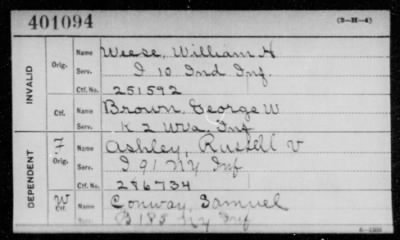 401094 (3-M-4)
INVALID
Orig. Name Weese, William H
Serv. I 10 Ind Inf.
Ctf. No. 251592
Ctf. Name Brown, George W
Serv. K 2 WVa. Inf
DEPENDENT
F. Orig. Name Ashley, Russell V
Serv. I 91 NY Inf
Ctf. No. 286734
W Ctf. Name Conway, Samuel
Serv. B 185 Ny Inf